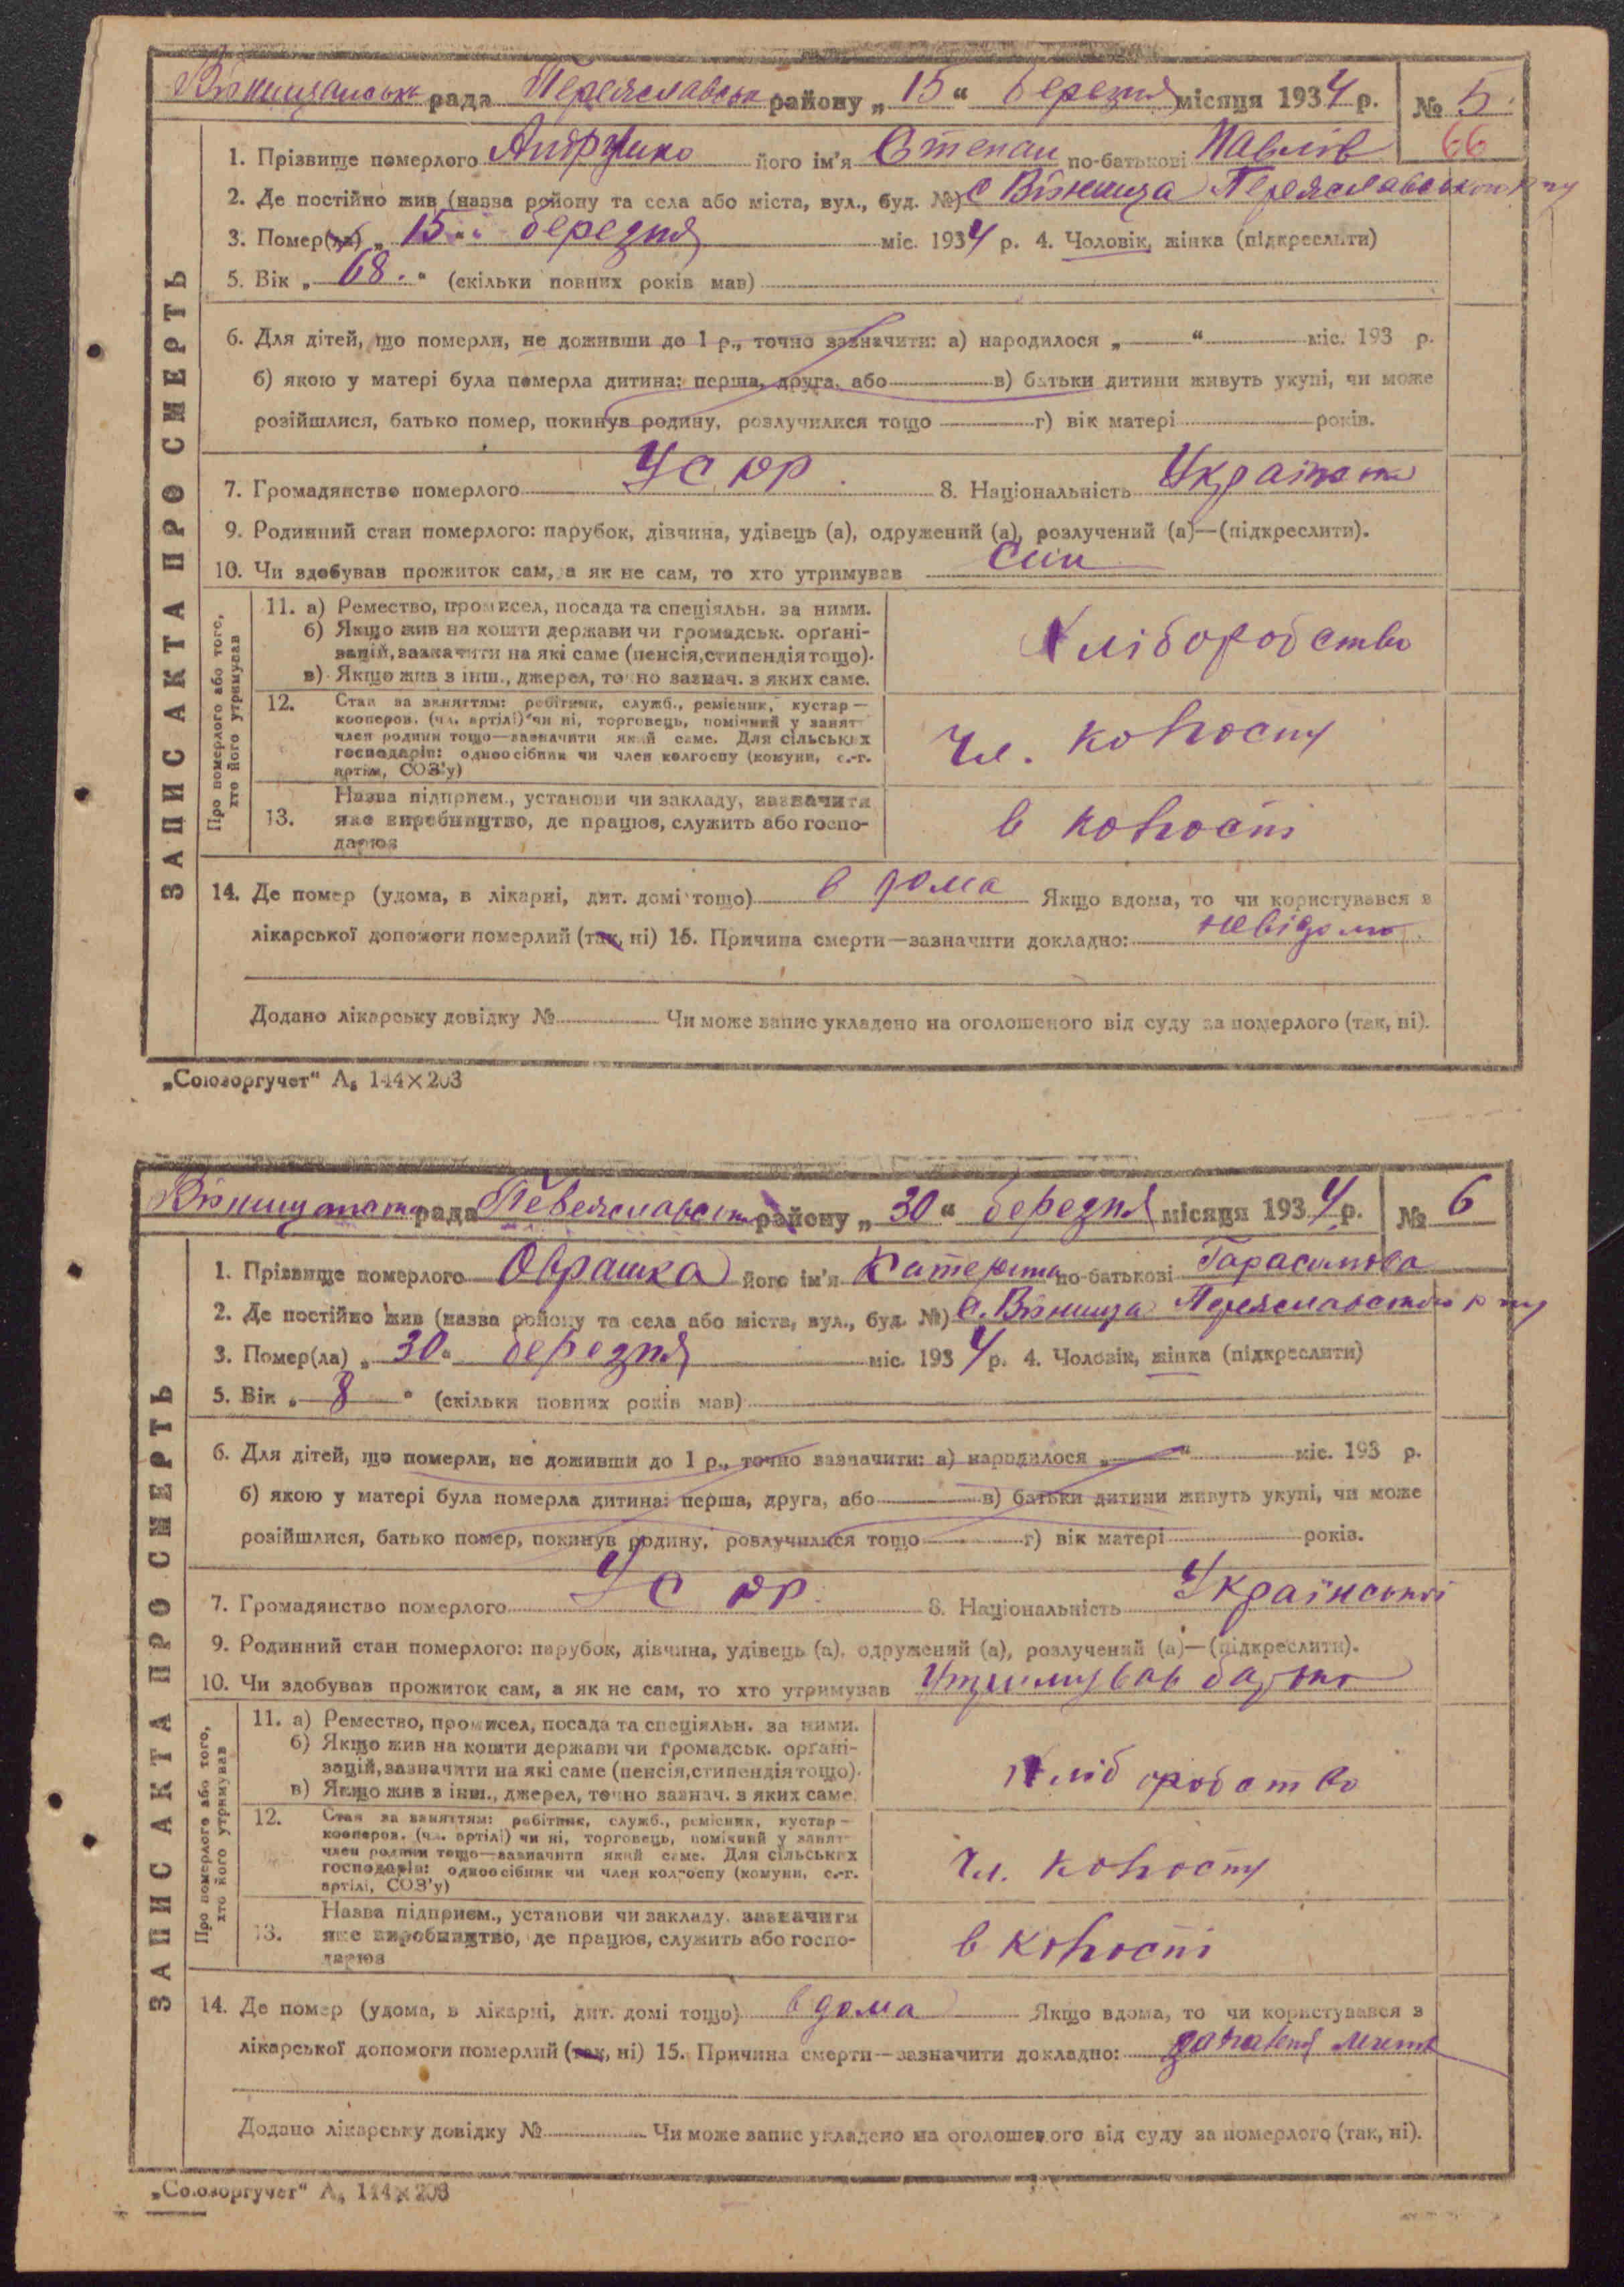 рада Переяславськ району „ 15 “ березня місяця 1934 р. № 5
66
1. Прізвище померлого його ім'я Степан по-батькові Павлів
2. Де постійно жив (назва району та села або міста, вул., буд. №) с Вінниця Переяславського р-ну
3. Помер(ла) „ 15 “ березня міс. 1934 р. 4. Чоловік, жінка (підкреслити)
5. Вік „ 68. “ (скільки повних років мав)
6. Для дітей, що померли, не доживши до 1 р., точно зазначити: а) народилося „ “ міс. 193 р.
б) якою у матері була померла дитина: перша, друга, або в) батьки дитини живуть укупі, чи може
розійшлися, батько помер, покинув родину, розлучилися тощо г) вік матері років.
7. Громадянство померлого УСРР. 8. Національність
9. Родинний стан померлого: парубок, дівчина, удівець (а), одружений (а), розлучений (а)—(підкреслити).
10. Чи здобував прожиток сам, а як не сам, то хто утримував Син
ЗАПИС АКТА ПРО СМЕРТЬ
Про померлого або того,
хто його утримував
11. а) Ремество, промисел, посада та спеціяльн. за ними.
б) Якщо жив на кошти держави чи громадськ. органі-
зацій, зазначити на які саме (пенсія, стипендія тощо).
в) Якщо жив з інш., джерел, точно зазнач. з яких саме.
хліборобство
12. Стан за заняттям: робітник, служб., ремісник, кустар—
кооперов. (чл. артілі) чи ні, торговець, помічний у занят-
член родини тощо—зазначити який саме. Для сільських
господарів: одноосібник чи член колгоспу (комуни, с.-г.
артілі, СОЗ'у)
Чл. колгоспу
13. Назва підприєм., установи чи закладу, зазначити
яке виробництво, де працює, служить або госпо-
дарює
в колгоспі
14. Де помер (удома, в лікарні, дит. домі тощо) в дома Якщо вдома, то чи користувався з
лікарської допомоги померлий (так, ні) 15. Причина смерти—зазначити докладно: невідомо
Додано лікарську довідку № Чи може запис укладено на оголошеного від суду за померлого (так, ні).
„Союзоргучет“ А₅ 144×203
рада району „ 30 “ березня місяця 1934 р. № 6
1. Прізвище померлого Оврашка його ім'я Катерина по-батькові Гарасимова
2. Де постійно жив (назва району та села або міста, вул., буд. №) с. Вінниця Переяславського р-ну
3. Помер(ла) „ 30 “ березня міс. 1934 р. 4. Чоловік, жінка (підкреслити)
5. Вік „ 8 “ (скільки повних років мав)
6. Для дітей, що померли, не доживши до 1 р., точно зазначити: а) народилося „ “ міс. 193 р.
б) якою у матері була померла дитина: перша, друга, або в) батьки дитини живуть укупі, чи може
розійшлися, батько помер, покинув родину, розлучилися тощо г) вік матері років.
7. Громадянство померлого УСРР. 8. Національність
9. Родинний стан померлого: парубок, дівчина, удівець (а), одружений (а), розлучений (а)—(підкреслити).
10. Чи здобував прожиток сам, а як не сам, то хто утримував Утримував батько
ЗАПИС АКТА ПРО СМЕРТЬ
Про померлого або того,
хто його утримував
11. а) Ремество, промисел, посада та спеціяльн. за ними.
б) Якщо жив на кошти держави чи громадськ. органі-
зацій, зазначити на які саме (пенсія, стипендія тощо).
в) Якщо жив з інш., джерел, точно зазнач. з яких саме.
хліборобство
12. Стан за заняттям: робітник, служб., ремісник, кустар—
кооперов. (чл. артілі) чи ні, торговець, помічний у занят-
член родини тощо—зазначити який саме. Для сільських
господарів: одноосібник чи член колгоспу (комуни, с.-г.
артілі, СОЗ'у)
Чл. колгоспу
13. Назва підприєм., установи чи закладу, зазначити
яке виробництво, де працює, служить або госпо-
дарює
в колгоспі
14. Де помер (удома, в лікарні, дит. домі тощо) вдома Якщо вдома, то чи користувався з
лікарської допомоги померлий (так, ні) 15. Причина смерти—зазначити докладно:
Додано лікарську довідку № Чи може запис укладено на оголошеного від суду за померлого (так, ні).
„Союзоргучет“ А₅ 144×203